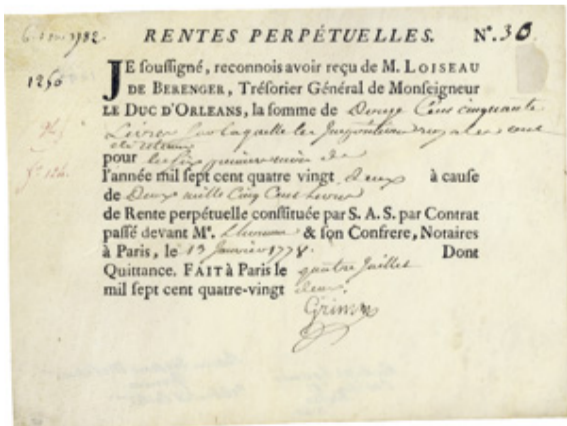 6 1782.
RENTES PERPÉTUELLES. N°. 30
1250
JE soussigné, reconnois avoir reçu de M. LOISEAU
DE BERENGER, Trésorier Général de Monseigneur
LE DUC D'ORLEANS, la somme de Douze Cens cinquante
Livres sur laquelle les
pour les six premiers mois de
l'année mil sept cent quatre vingt deux à cause
de Deux mille Cinq Cens Livres
de Rente perpétuelle constituée par S. A. S. par Contrat
passé devant Me. & son Confrere, Notaires
à Paris, le 13 Janvier 1778. Dont
Quittance. FAIT à Paris le quatre Juillet
mil sept cent quatre-vingt deux.
Grimm